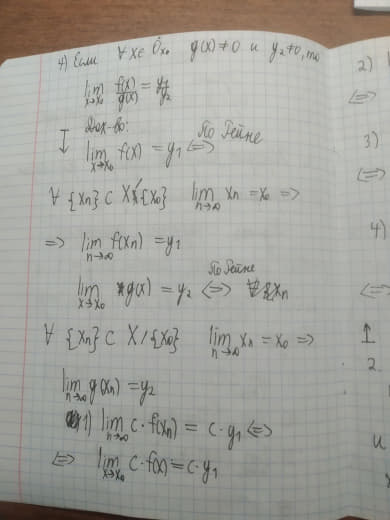 4) Если ∀ x∈ Ů_x₀ g(x)≠0 и y₂≠0, то
lim_{x→x₀} f(x)/g(x) = y₁/y₂
Док-во:
lim_{x→x₀} f(x) = y₁ <=> По Гейне
∀ {xₙ} ⊂ X\{x₀} lim_{n→∞} xₙ = x₀ =>
=> lim_{n→∞} f(xₙ) = y₁
lim_{x→x₀} g(x) = y₂ <=> По Гейне
∀ {xₙ} ⊂ X/{x₀} lim_{n→∞} xₙ = x₀ =>
lim_{n→∞} g(xₙ) = y₂
1) lim_{n→∞} c·f(xₙ) = c·y₁ <=>
<=> lim_{x→x₀} c·f(x) = c·y₁
2)
<=>
3)
<=>
4)
<=>
2.
и